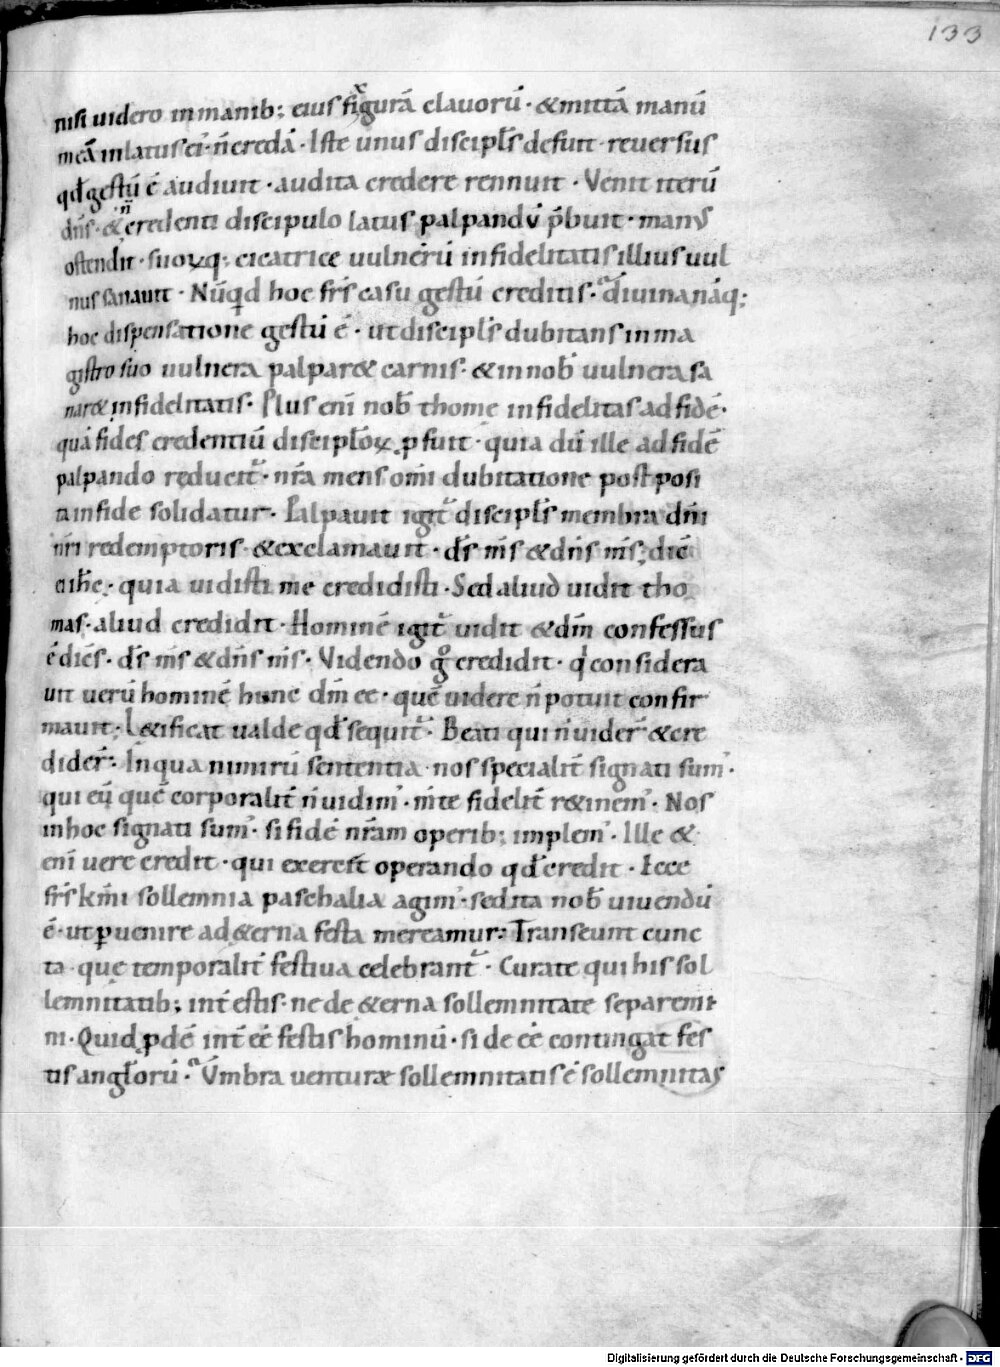 133
nisi uidero inmanib; eius figurā clauorū · &mittā manū
meā inlatus ei᾿ · n̄ credā · Iste unus discipl̄s defuit · reuersus
qđ gestū ē audiuit · audita credere rennuit · Venit iterū
dn̄s · & n̄ credenti discipulo latus palpandū p̄buit · manꝰ
ostendit · suoꝝq; cicatrice uulnerū infidelitatis illius uul
nus sanauit · Nūqđ hoc frs̄ casu gestū creditis · diuinanāq;
hoc dispensatione gestū ē · ut discipl̄s dubitans in ma
gistro suo uulnera palpar& carnis · & in nob̄ uulnera sa
nar& infidelitatis · Plus eni nob̄ thome infidelitas ad fidē ·
quā fides credentiū discipl̄oꝝ p̱fuit · quia dū ille ad fidē
palpando reducit᷑ · nr̄a mens om̄i dubitatione postposi
ta infide solidatur · Palpauit igit᷑ discipl̄s membra dn̄i
nr̄i redemptoris · & exclamauit · ds̄ ms̄ & dn̄s ms̄; dic̄
ei ih̄c · quia uidisti me credidisti · Sed aliud uidit tho
mas · aliud credidit · Hominē igit᷑ uidit & dm̄ confessus
ē dicēs · ds̄ ms̄ & dn̄s ms̄ · Videndo gͦ credidit · qͥ considera
uit uerū hominē hunc dm̄ ee · quē uidere n̄ potuit confir
mauit · L&ificat ualde qđ sequit᷑ · Beati qui n̄ uider᷑ & cre
dider᷑ · In qua nimirū sententia nos specialit᷑ signati sumꝰ ·
qui eū quē corporalit᷑ n̄ uidimꝰ · m̄te fidelit᷑ r&inemꝰ · Nos
inhoc signati sumꝰ · si fidē nr̄am operib; implemꝰ · Ille &
eni uere credit · qui exerc& operando qđ credit · Ecce
frs̄ km̄i sollemnia paschalia agimꝰ · sed ita nob̄ uiuendū
ē · ut ꝑuenire ad &erna festa mereamur: Transeunt cunc
ta · quę temporalit᷑ festiua celebrant᷑ · Curate qui his sol
lemnitatib; int᷑estis · ne de &erna sollemnitate separemi
ni · Quid p̱dē int᷑ēē festis hominū · si de eē contingat fes
tis angl̄orū · Vmbra venturæ sollemnitatis ē sollemnitas
Digitalisierung gefördert durch die Deutsche Forschungsgemeinschaft - DFG